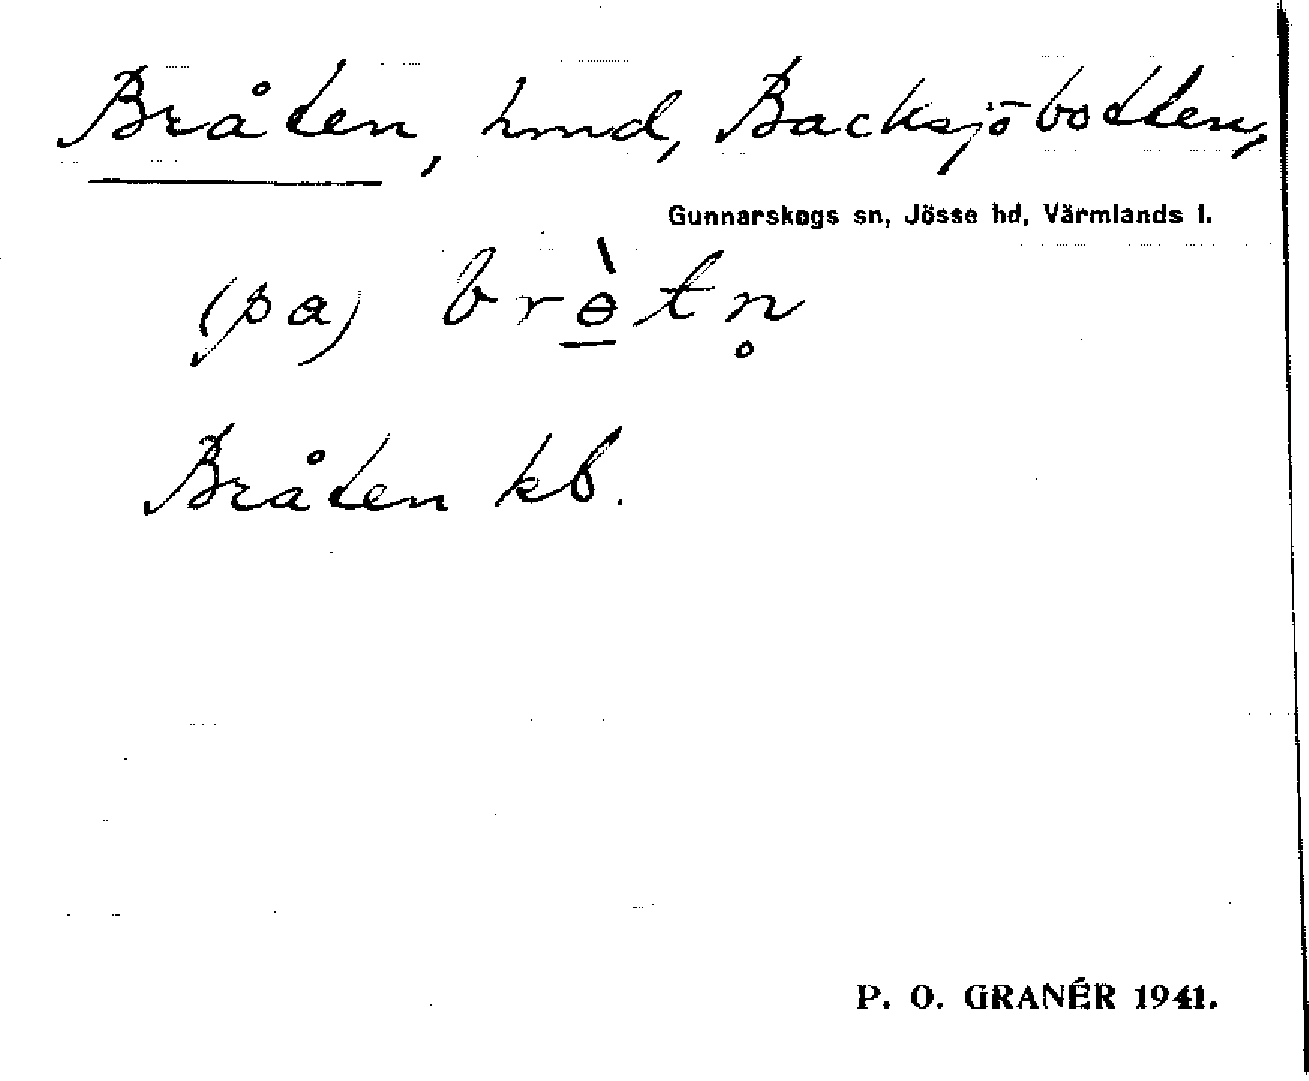 Bråten, hmd, Backsjöbotten,
Gunnarskogs sn, Jösse hd, Värmlands l.
(pa) brө̲̀tn̥
Bråten kb.
P. O. GRANÉR 1941.